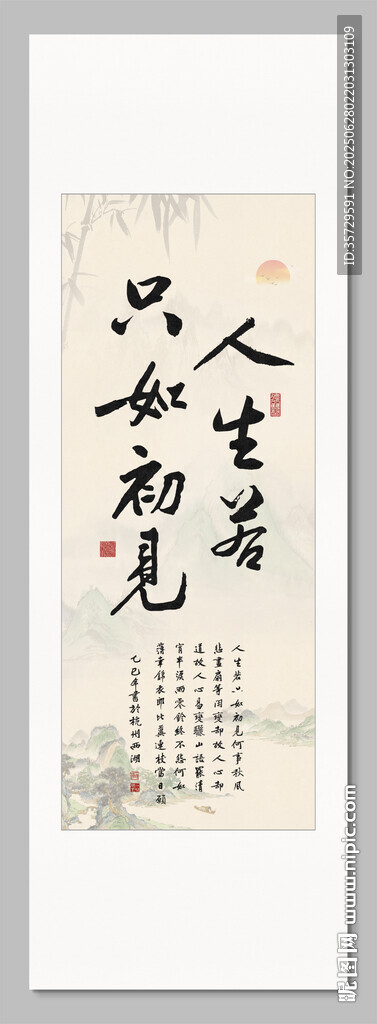 人生若
只如初見
人生若只如初見何事秋風
悲畫扇等閑變却故人心却
道故人心易變驪山語罷清
宵半淚雨零鈴終不怨何如
薄幸錦衣郎比翼連枝當日願
乙巳年書於杭州西湖
ID:35729591 NO:20250628022031303109
昵图网 www.nipic.com